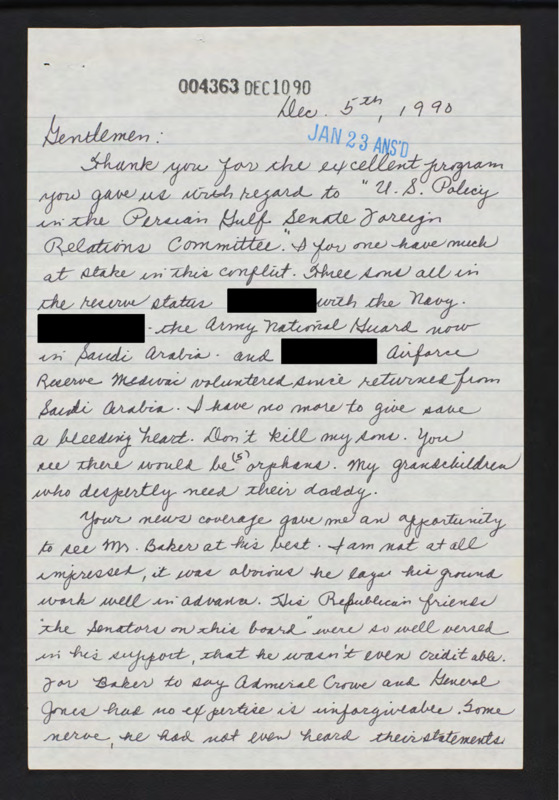 004363 DEC 10 90
Dec. 5th, 1990
JAN 23 ANS'D
Gentlemen:
Thank you for the excellent program
you gave us with regard to "U.S. Policy
in the Persian Gulf Senate Foreign
Relations Committee." I for one have much
at stake in this conflict. Three sons all in
the reserve status with the Navy.
- the Army National Guard now
in Saudi Arabia. and Airforce
Reserve Medivac voluntered since returned from
Saudi Arabia. I have no more to give save
a bleeding heart. Don't kill my sons. You
see there would be (5) orphans. My grandchildren
who despertly need their daddy.
Your news coverage gave me an opportunity
to see Mr. Baker at his best. I am not at all
impressed, it was obvious he lays his ground
work well in advance. His Republican friends
"the Senators on this board" were so well versed
in his support, that he wasn't even credit able.
For Baker to say Admiral Crowe and General
Jones had no expertise is unforgiveable. Some
nerve, he had not even heard their statements.